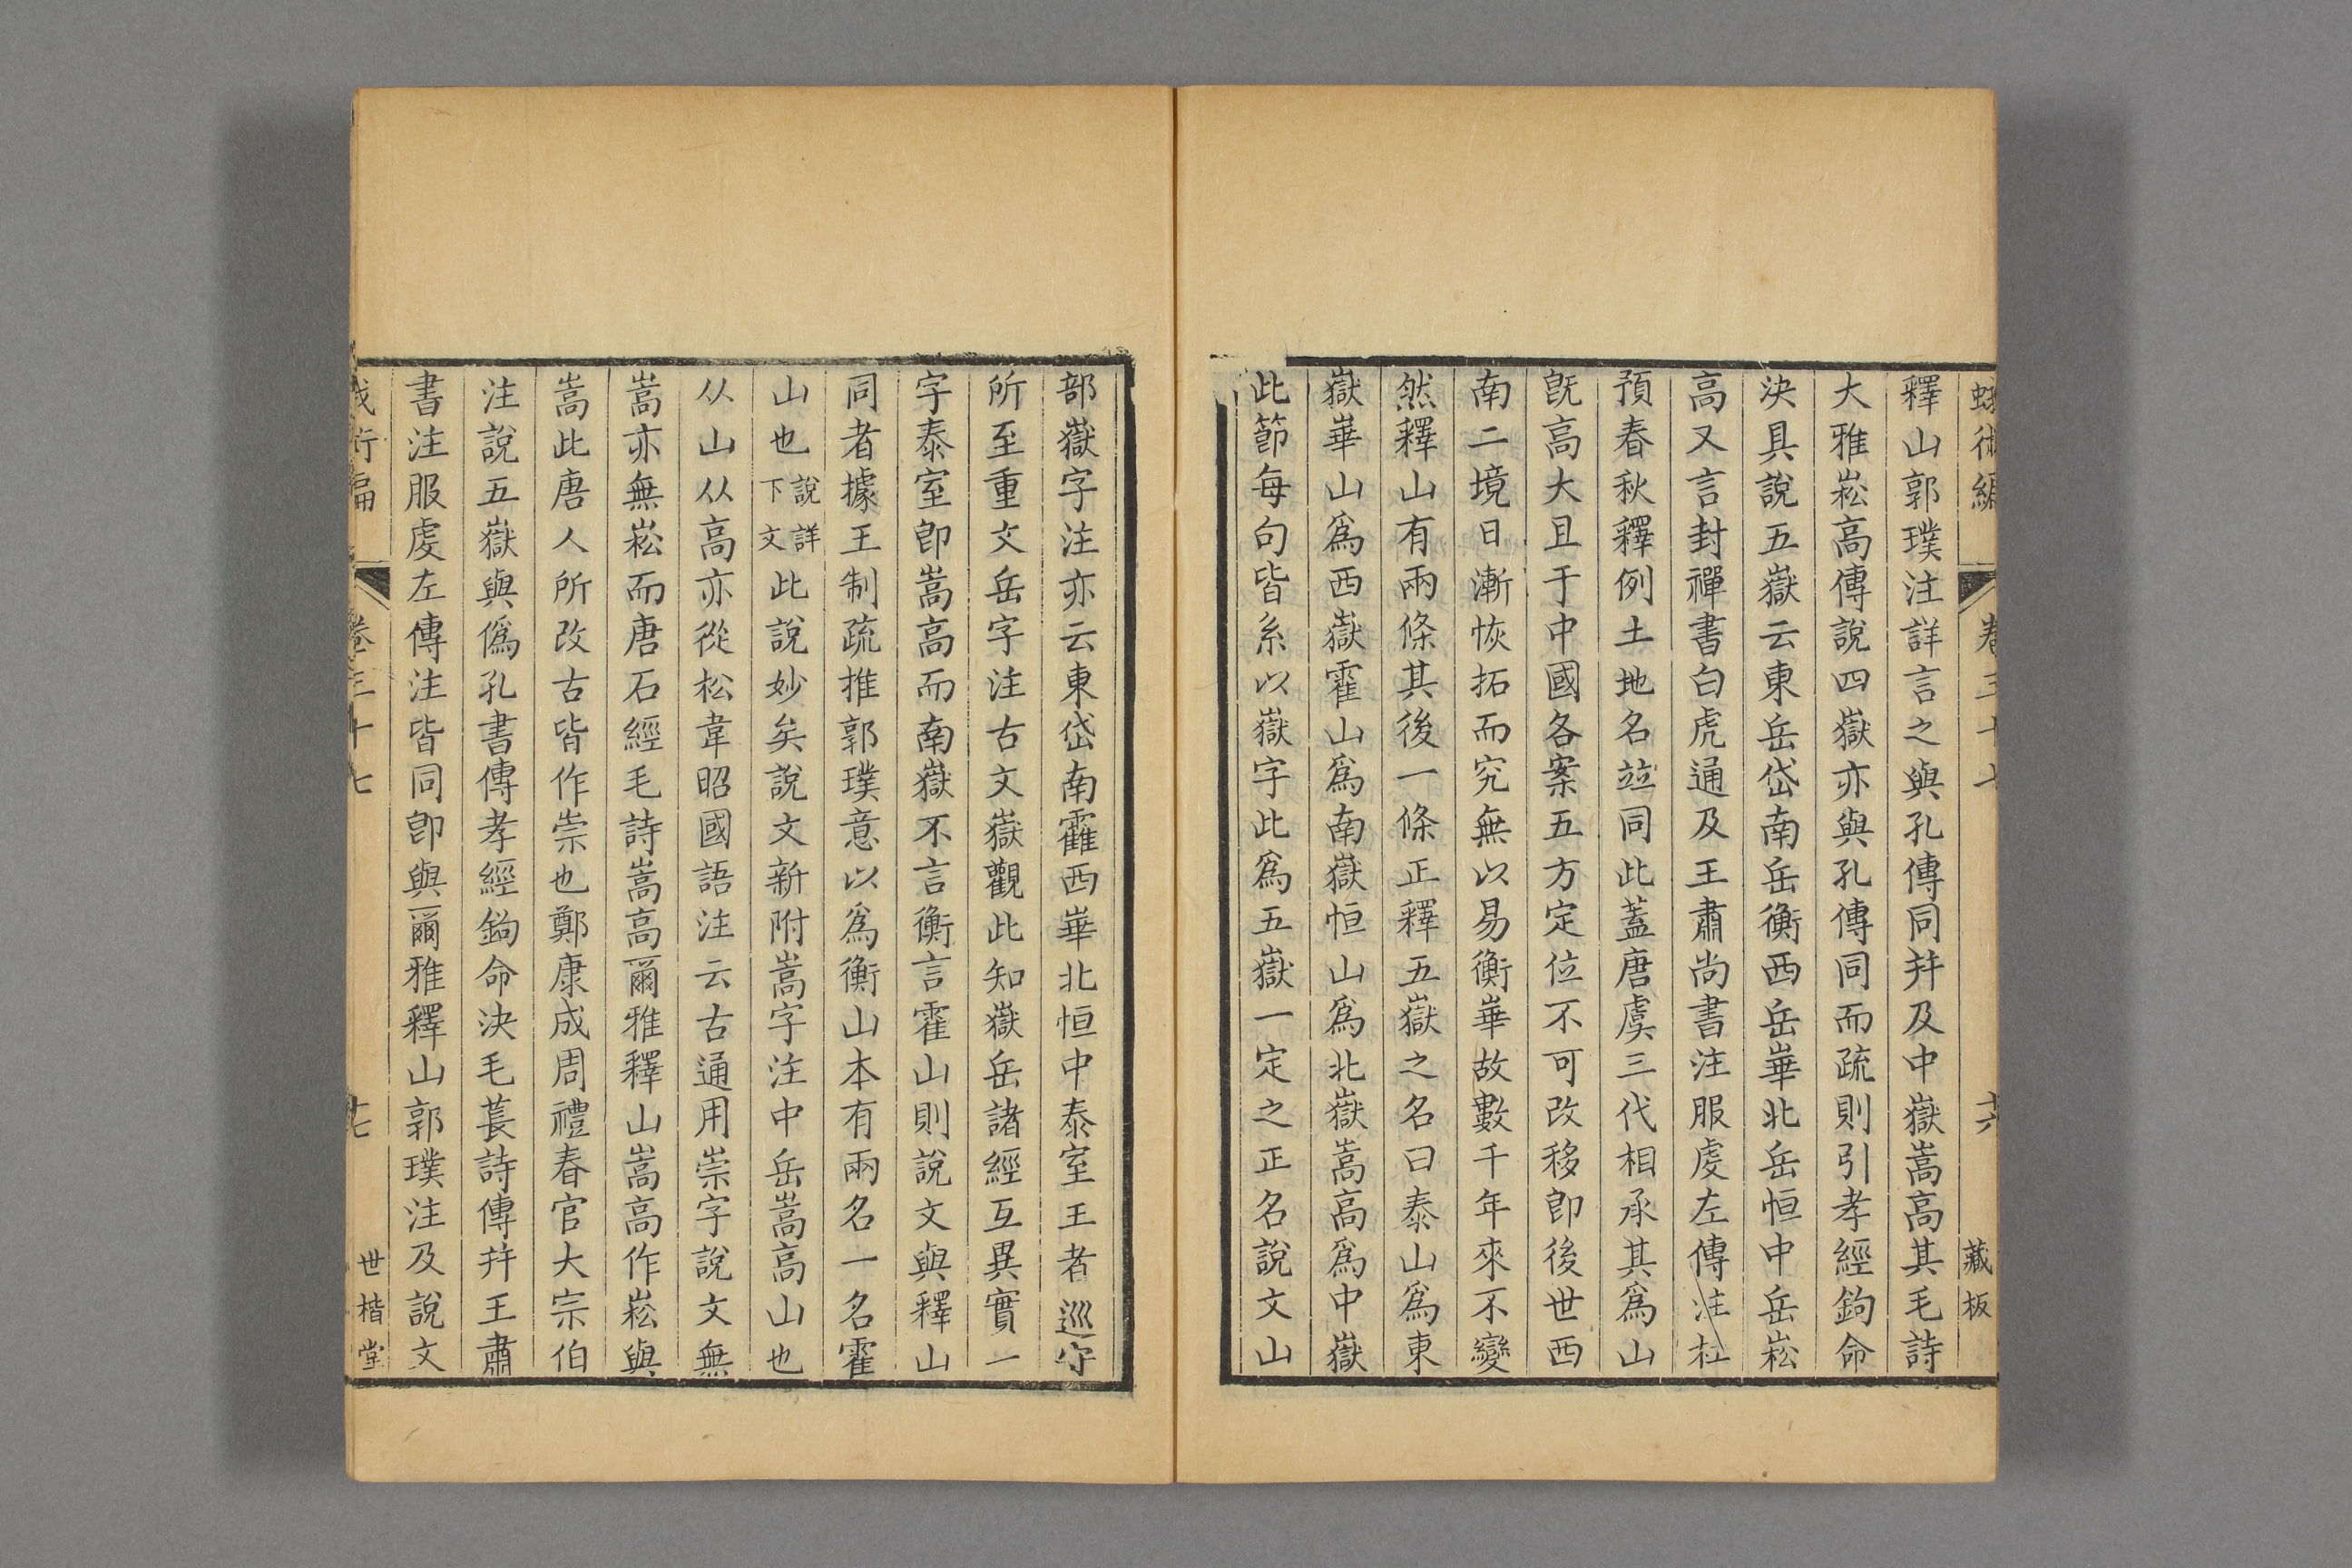 蛾術編 卷三十七 十六 藏板
釋山郭璞注詳言之與孔傳同幷及中嶽嵩高其毛詩
大雅崧高傳說四嶽亦與孔傳同而疏則引孝經鉤命
決具說五嶽云東岳岱南岳衡西岳崋北岳恒中岳崧
高又言封禪書白虎通及王肅尚書注服虔左傳注杜
預春秋釋例土地名竝同此蓋唐虞三代相承其爲山
旣高大且于中國各案五方定位不可改移卽後世西
南二境日漸恢拓而究無以易衡崋故數千年來不變
然釋山有兩條其後一條正釋五嶽之名曰泰山爲東
嶽崋山爲西嶽霍山爲南嶽恒山爲北嶽嵩高爲中嶽
此節每句皆系以嶽字此爲五嶽一定之正名說文山
部嶽字注亦云東岱南靃西崋北恒中泰室王者巡守
所至重文岳字注古文嶽觀此知嶽岳諸經互異實一
字泰室卽嵩高而南嶽不言衡言霍山則說文與釋山
同者據王制疏推郭璞意以爲衡山本有兩名一名霍
山也說詳下文此說妙矣說文新附嵩字注中岳嵩高山也
从山从高亦從松韋昭國語注云古通用崇字說文無
嵩亦無崧而唐石經毛詩嵩高爾雅釋山嵩高作崧與
嵩此唐人所改古皆作崇也鄭康成周禮春官大宗伯
注說五嶽與僞孔書傳孝經鉤命決毛萇詩傳幷王肅
書注服虔左傳注皆同卽與爾雅釋山郭璞注及說文
蛾術編 卷三十七 十七 世楷堂